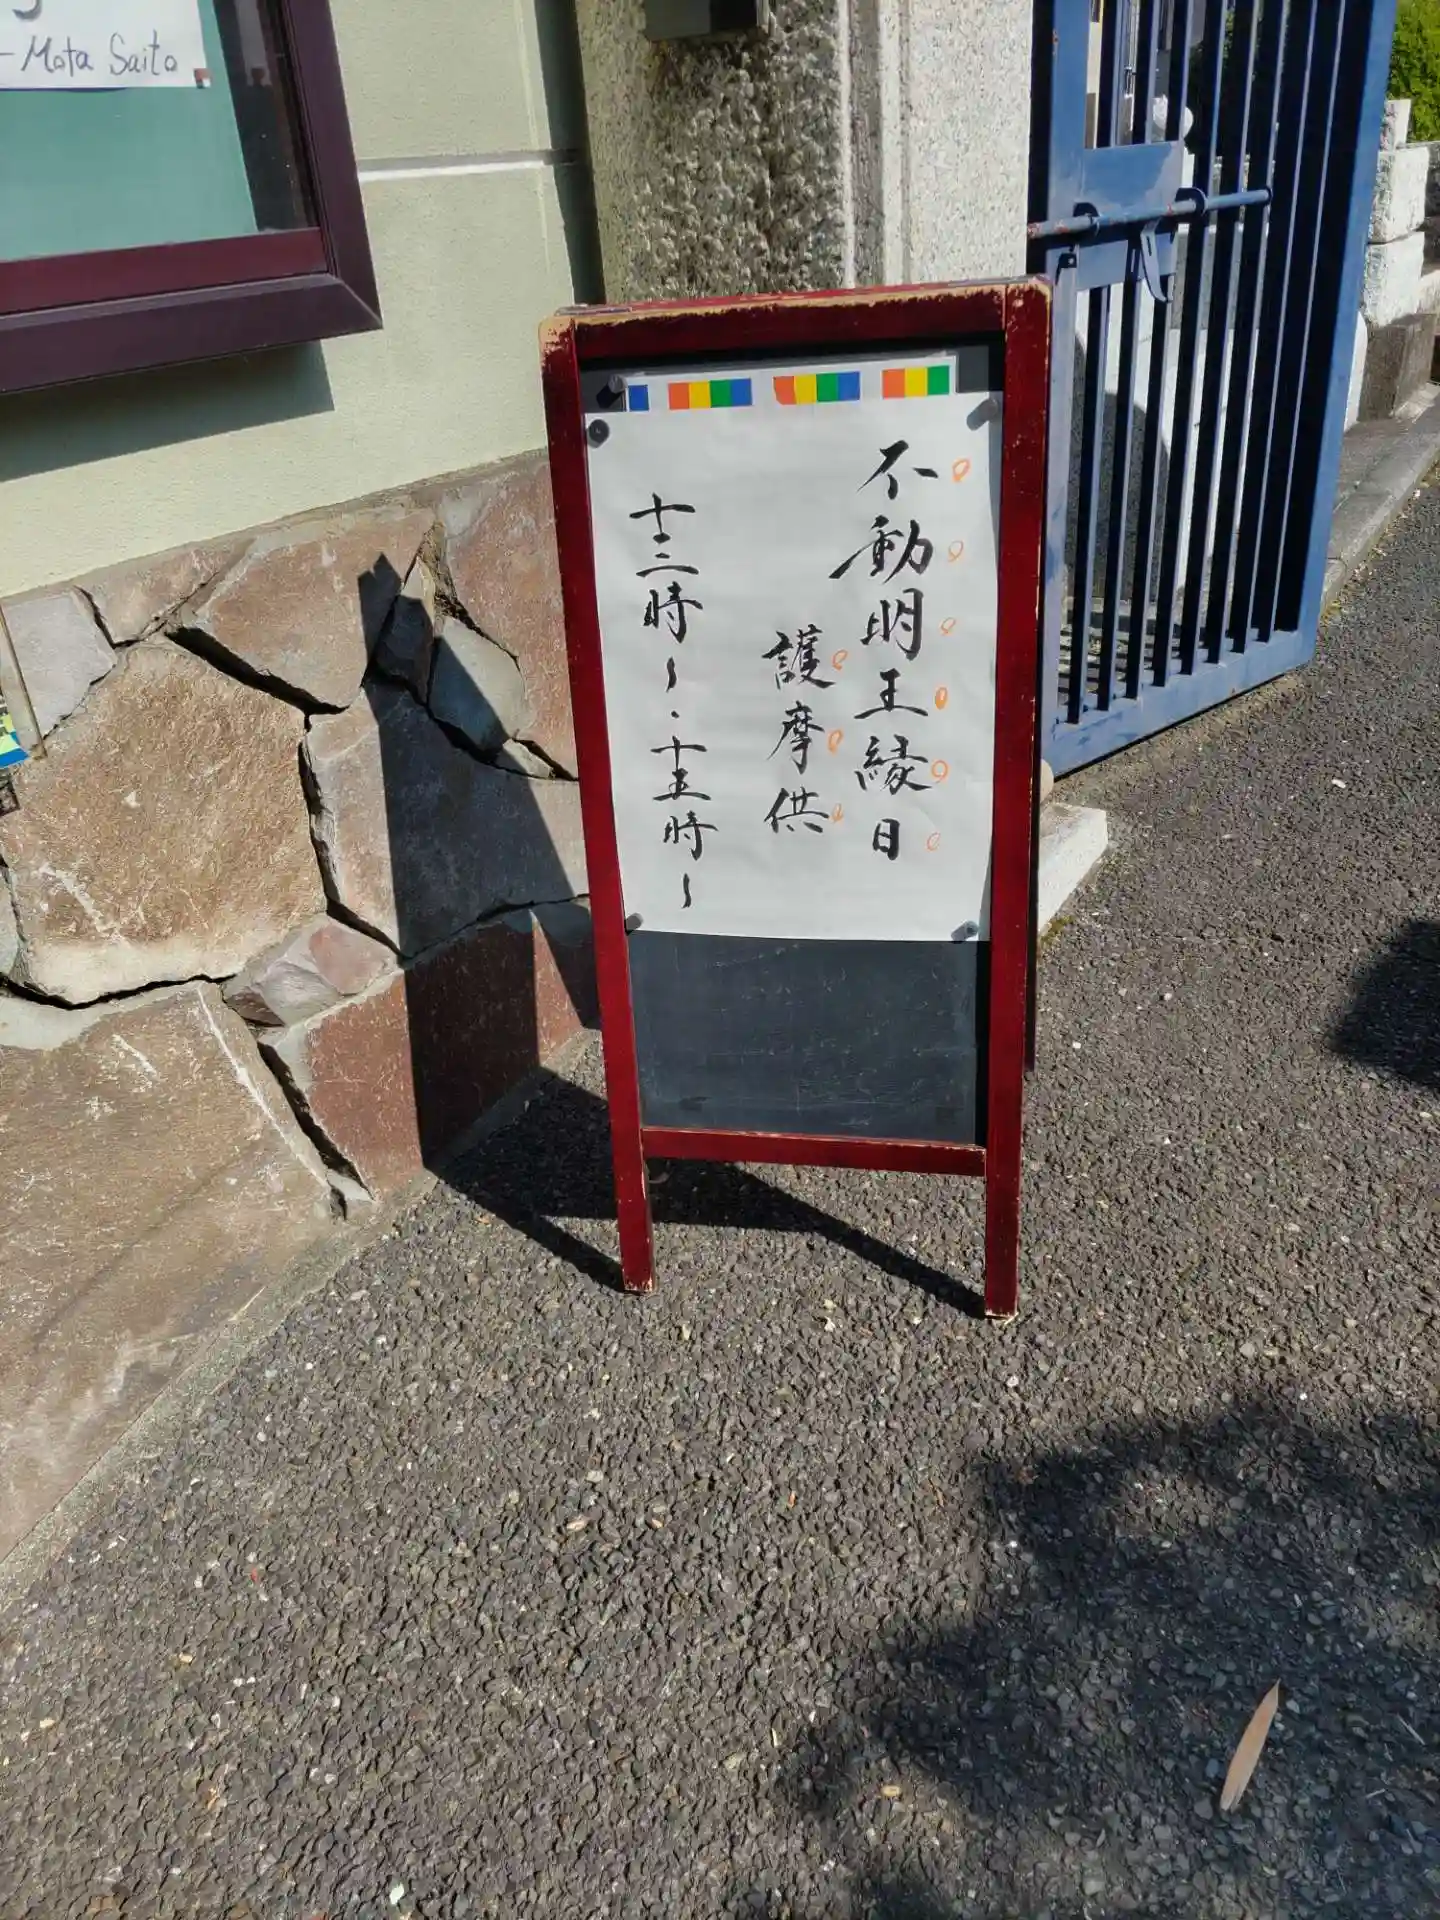 不動明王縁日
護摩供
十二時〜・十五時〜
- Mota Saito